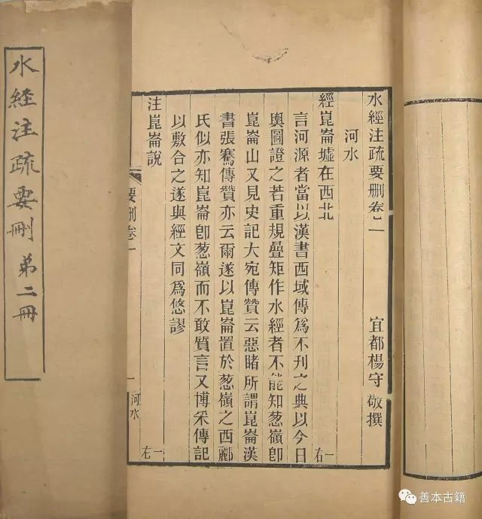 水經注疏要刪 第二冊
水經注疏要刪卷一
河水
宜都楊守敬撰
經崑崙墟在西北
言河源者當以漢書西域傳爲不刋之典以今日
輿圖證之若重規疊矩作水經者不能知葱嶺卽
崑崙山又見史記大宛傳贊云惡睹所謂崑崙漢
書張騫傳贊亦云爾遂以崑崙置於葱嶺之西酈
氏似亦知崑崙卽葱嶺而不敢質言又博采傳記
以敷合之遂與經文同爲悠謬
注崑崙說
要刪卷一
河水
一右
一左
善本古籍